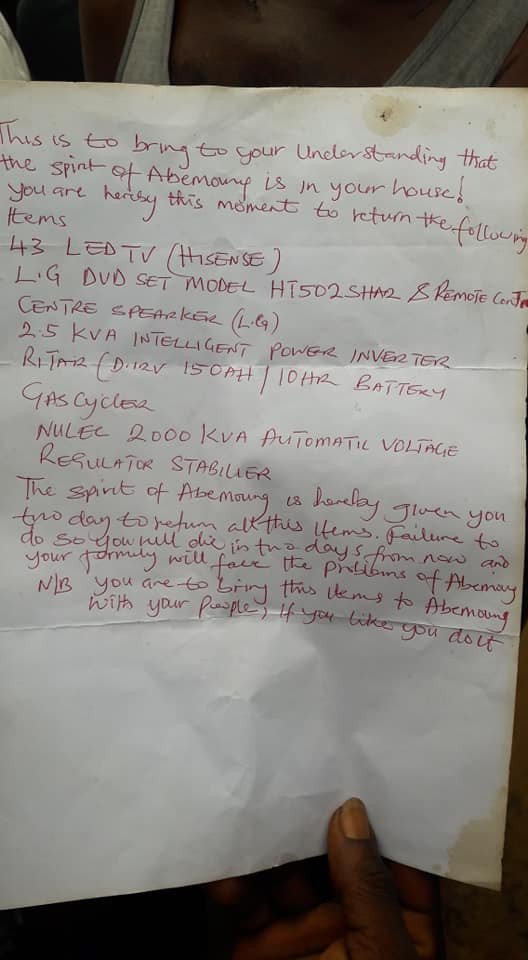 This is to bring to your Understanding that
the spirit of Abemoung is in your house!
You are hereby this moment to return the following
Items
43 LED TV (HISENSE)
L.G DVD SET MODEL HT502SHA2 & Remote Contr
CENTRE SPEARKER (L.G)
2.5 KVA INTELLIGENT POWER INVERTER
RITAR (D.12V 150AH / 10HR BATTERY
GAS CYCLER
NULEC 2000 KVA AUTOMATIC VOLTAGE
REGULATOR STABILIER
The spirit of Abemoung is hereby given you
two day to return all this Items. Failure to
do so you will die in two days from now and
your family will face the problems of Abemoung
N/B you are to bring this items to Abemoung
with your people, if you like you do it